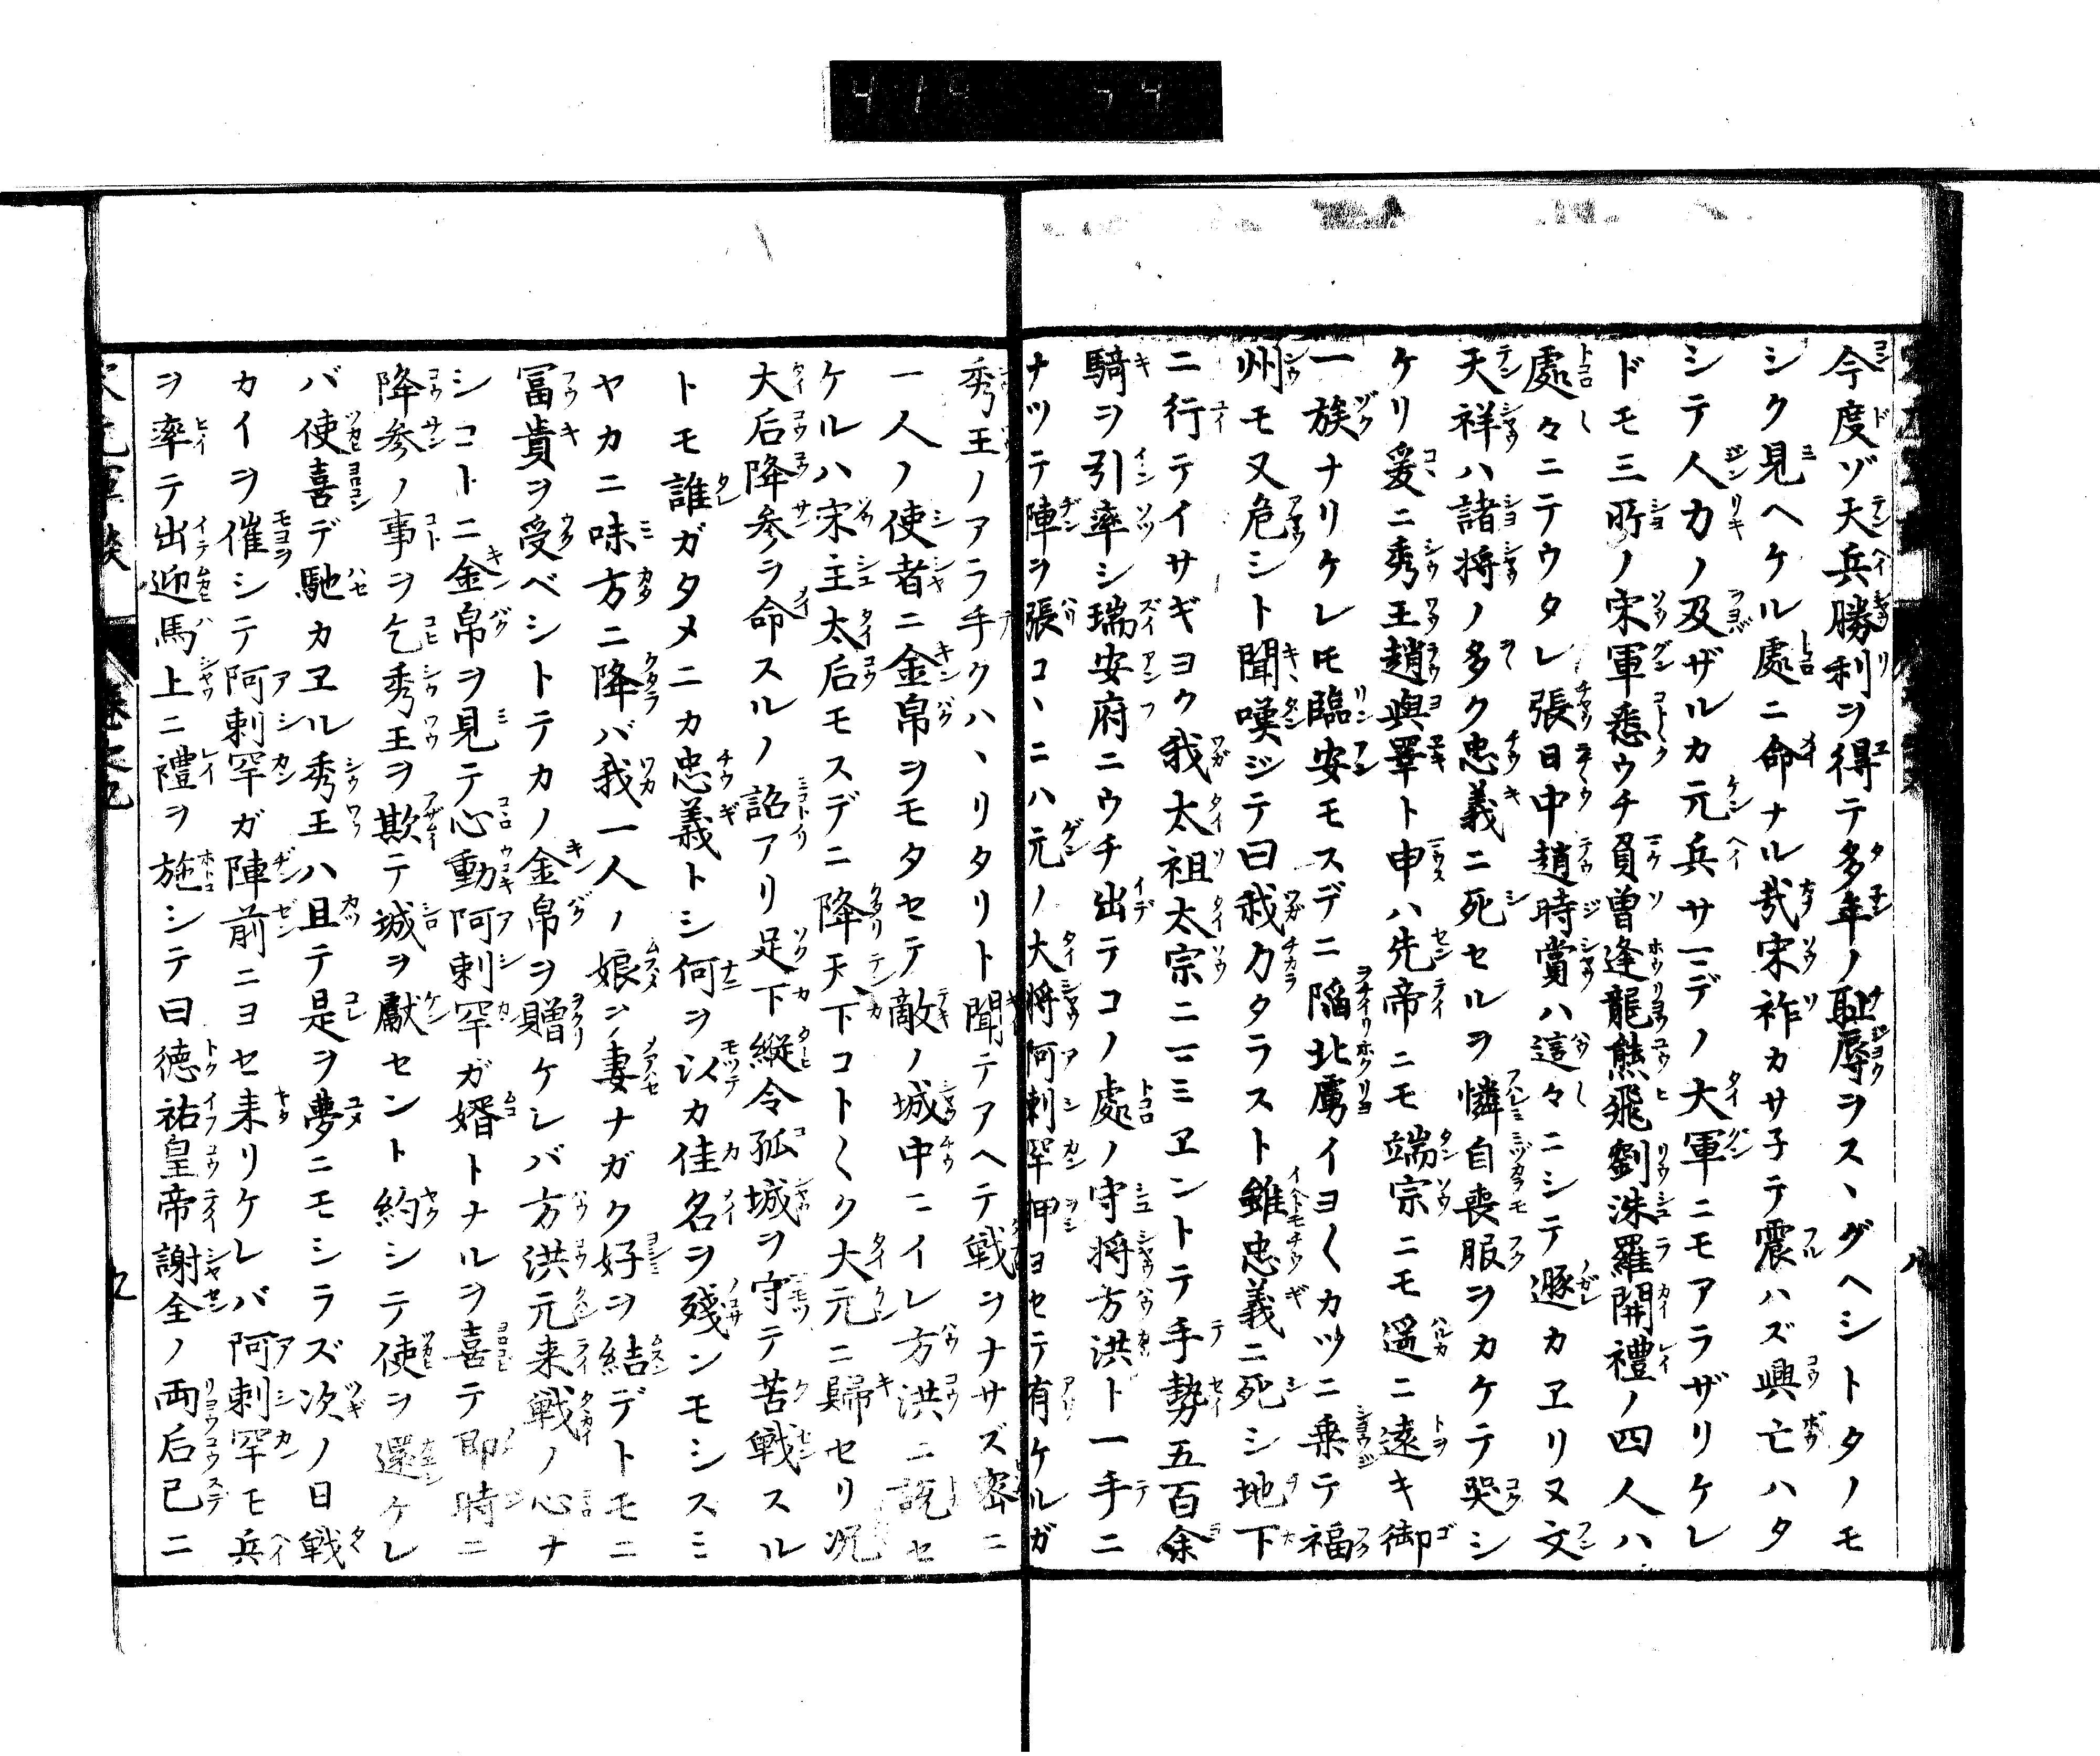 今度ゾ天兵勝利ヲ得テ多年ノ耻辱ヲスヽグヘシトタノモ
シク見ヘケル處ニ命ナル哉宋祚カサ子テ震ハズ興亡ハタ
シテ人力ノ及ザルカ元兵サマデノ大軍ニモアラザリケレ
ドモ三所ノ宋軍悉ウチ負曽逢龍熊飛劉洙羅開禮ノ四人ハ
處々ニテウタレ張日中趙時賞ハ這々ニシテ遯カヱリヌ文
天祥ハ諸将ノ多ク忠義ニ死セルヲ憐自喪服ヲカケテ哭シ
ケリ爰ニ秀王趙與睪ト申ハ先帝ニモ端宗ニモ遥ニ遠キ御
一族ナリケレ𪜈臨安モスデニ陥北虜イヨ〱カツニ乗テ福
州モ又危シト聞嘆ジテ曰我力タラスト雖忠義ニ死シ地下
ニ行テイサギヨク我太祖太宗ニマミヱントテ手勢五百余
騎ヲ引率シ瑞安府ニウチ出テコノ處ノ守将方洪ト一手ニ
ナツテ陣ヲ張コヽニハ元ノ大将阿剌罕押ヨセテ有ケルガ
秀王ノアラ手クハヽリタリト聞テアヘテ戦ヲナサズ密ニ
一人ノ使者ニ金帛ヲモタセテ敵ノ城中ニイレ方洪ニ説セ
ケルハ宋主太后モスデニ降天下コト〱ク大元ニ歸セリ况
大后降参ヲ命スルノ詔アリ足下縦令孤城ヲ守テ苦戦スル
トモ誰ガタメニカ忠義トシ何ヲ以カ佳名ヲ殘ンモシスミ
ヤカニ味方ニ降バ我一人ノ娘ヲ妻ナガク好ヲ結デトモニ
冨貴ヲ受ベシトテカノ金帛ヲ贈ケレバ方洪元来戦ノ心ナ
シコトニ金帛ヲ見テ心動阿剌罕ガ婿トナルヲ喜テ即時ニ
降参ノ事ヲ乞秀王ヲ欺テ城ヲ獻セント約シテ使ヲ還ケレ
バ使喜デ馳カヱル秀王ハ且テ是ヲ夢ニモシラズ次ノ日戦
カイヲ催シテ阿剌罕ガ陣前ニヨセ来リケレバ阿剌罕モ兵
ヲ率テ出迎馬上ニ禮ヲ施シテ曰徳祐皇帝謝全ノ両后已ニ